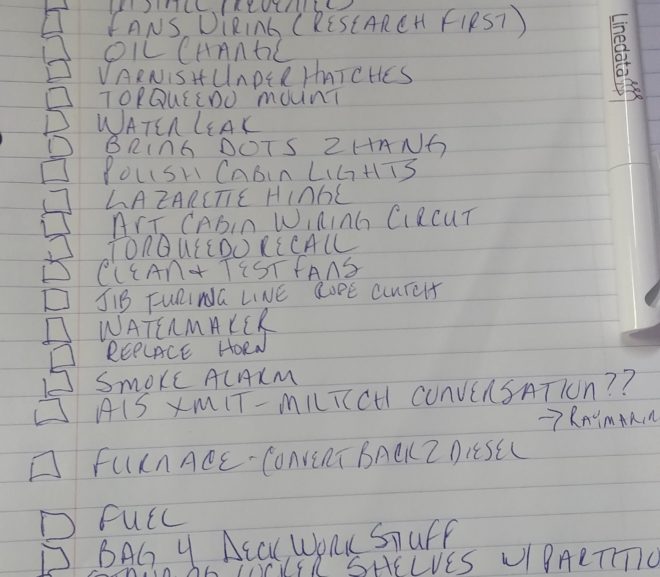 INSTALL
FANS WIRING (RESEARCH FIRST)
OIL CHANGE
VARNISH UNDER HATCHES
TORQUEEDO MOUNT
WATER LEAK
BRING DOTS 2 HANG
POLISH CABIN LIGHTS
LAZARETTE HINGE
AFT CABIN WIRING CIRCUT
TORQUEEDO RECALL
CLEAN + TEST FANS
JIB FURING LINE ROPE CLUTCH
WATERMAKER
REPLACE HORN
SMOKE ALARM
AIS XMIT - MILTECH CONVERSATION??
→ RAYMARIN
FURNACE - CONVERT BACK 2 DIESEL
FUEL
BAG 4 DECK WORK STUFF
LOCKER SHELVES W/ PARTITIO
Linedata